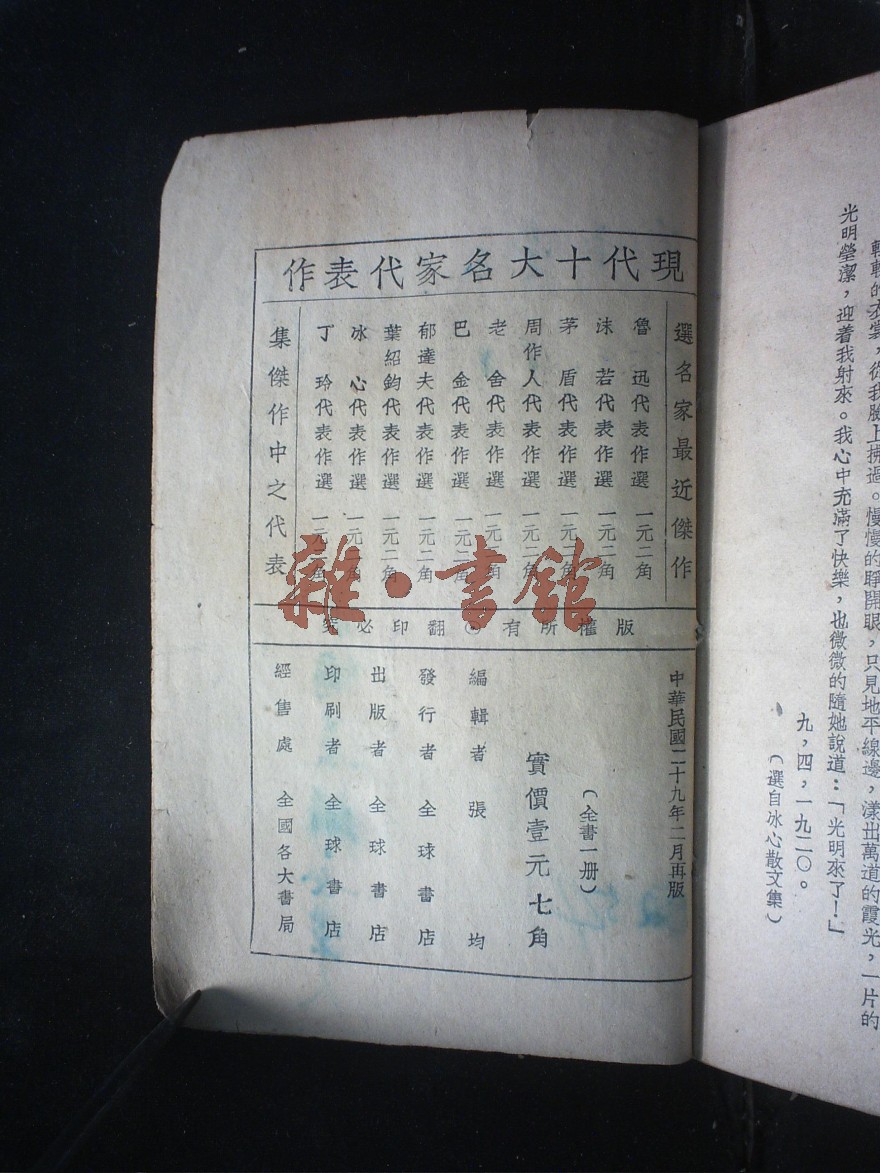 輕輕的衣裳，從我臉上拂過。慢慢的睜開眼，只見地平線邊，漾出萬道的霞光，一片的
光明瑩潔，迎着我射來。我心中充滿了快樂，也微微的隨她說道：「光明來了！」
九，四，一九二〇。
（選自冰心散文集）
現代十大名家代表作
選名家最近傑作
魯迅代表作選 一元二角
沫若代表作選 一元二角
茅盾代表作選 一元二角
周作人代表作選 一元二角
老舍代表作選 一元二角
巴金代表作選 一元二角
郁達夫代表作選 一元二角
葉紹鈞代表作選 一元二角
冰心代表作選 一元二角
丁玲代表作選 一元二角
集傑作中之代表
版權所有〇翻印必究
中華民國二十九年二月再版
（全書一册）
實價壹元七角
編輯者 張均
發行者 全球書店
出版者 全球書店
印刷者 全球書店
經售處 全國各大書局
雜·書館